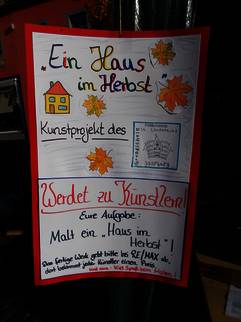 „Ein Haus
im Herbst"
Kunstprojekt des
Werdet zu Künstlern!
Eure Aufgabe:
Malt ein „Haus im
Herbst"!
Das fertige Werk gebt bitte bei RE/MAX ab,
dort bekommt jeder Künstler einen Preis.
Viel Spaß beim Malen!